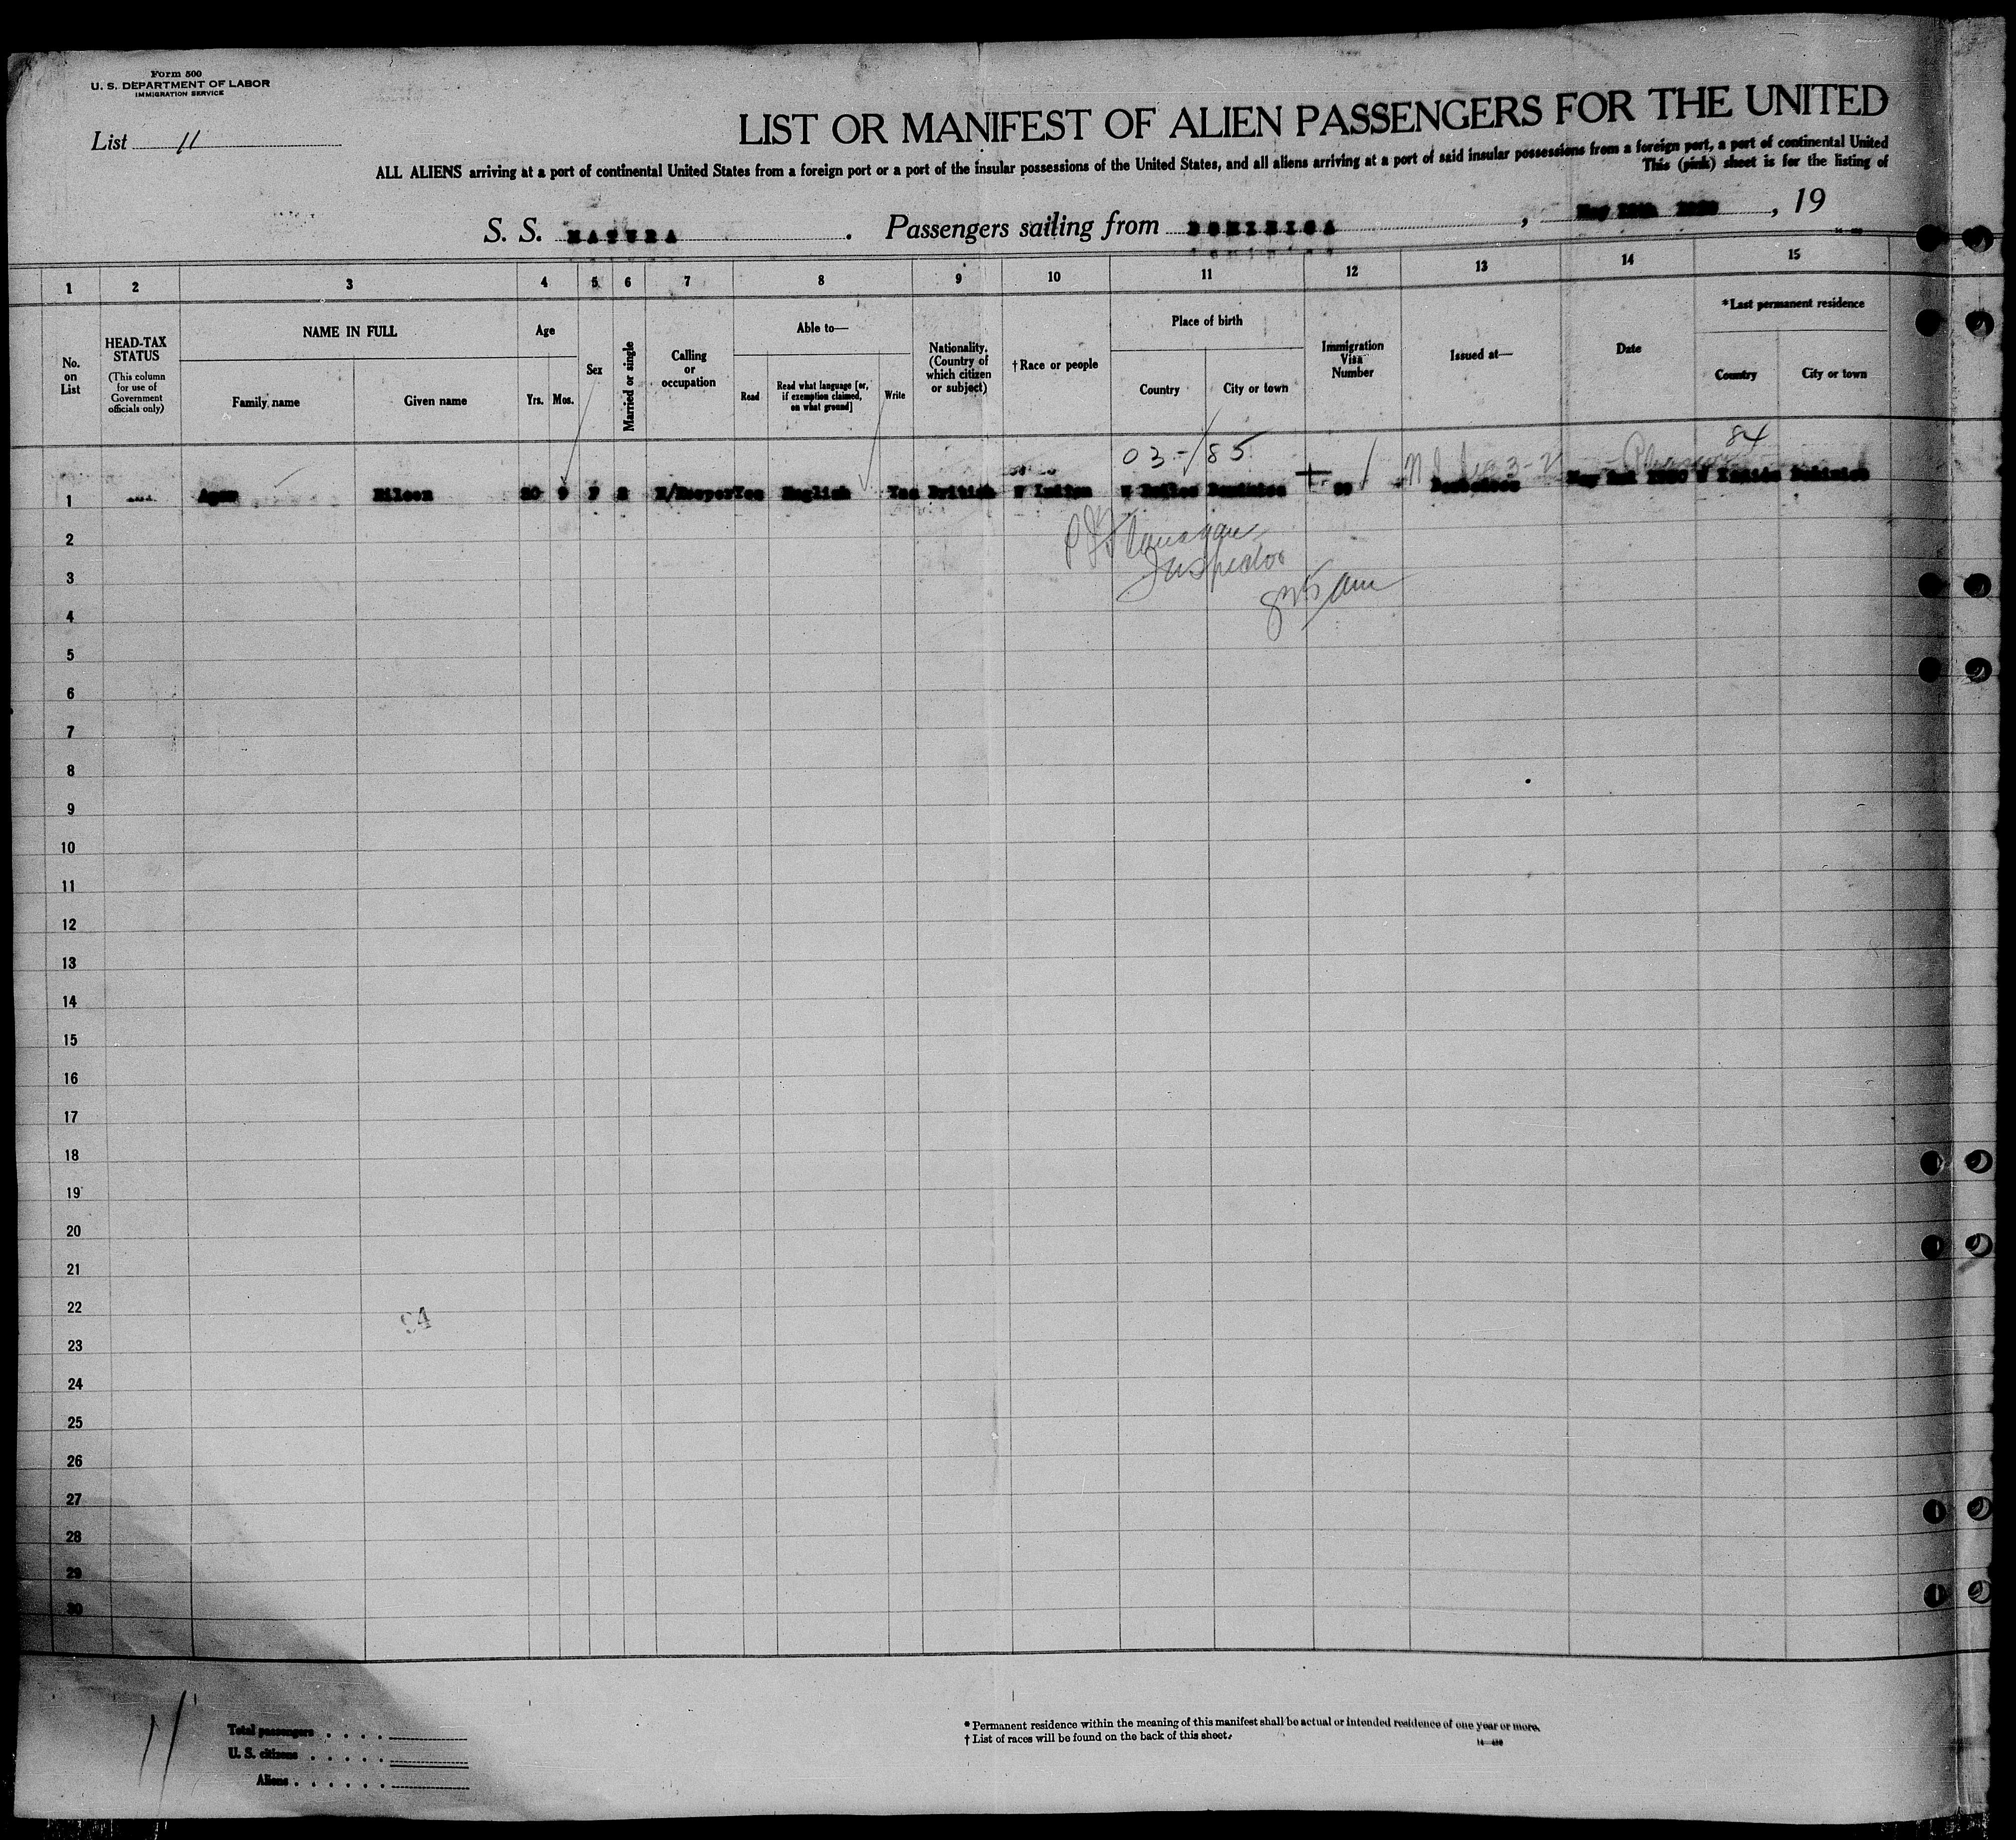 Form 500
U. S. DEPARTMENT OF LABOR
IMMIGRATION SERVICE
List 11
LIST OR MANIFEST OF ALIEN PASSENGERS FOR THE UNITED
ALL ALIENS arriving at a port of continental United States from a foreign port or a port of the insular possessions of the United States, and all aliens arriving at a port of said insular possessions from a foreign port, a port of continental United
This (pink) sheet is for the listing of
S. S. MATURA. Passengers sailing from DOMINICA, May , 19
1 2 3 4 5 6 7 8 9 10 11 12 13 14 15
No. on List
HEAD-TAX STATUS
(This column for use of Government officials only)
NAME IN FULL
Family name
Given name
Age
Yrs. Mos.
Sex
Married or single
Calling or occupation
Able to—
Read
Read what language [or, if exemption claimed, on what ground]
Write
Nationality. (Country of which citizen or subject)
† Race or people
Place of birth
Country
City or town
Immigration Visa Number
Issued at—
Date
*Last permanent residence
Country
City or town
03-/85
84
1 Eileen 20 9 F S H/Keeper Yes English Yes British W Indian W Indies Dominica Barbados May 2nd 1930 W Indies Dominica
Inspector
am
2
3
4
5
6
7
8
9
10
11
12
13
14
15
16
17
18
19
20
21
22
23
24
25
26
27
28
29
30
94
11
Total passengers . . . .
U. S. citizens . . . . .
Aliens . . . . . .
* Permanent residence within the meaning of this manifest shall be actual or intended residence of one year or more.
† List of races will be found on the back of this sheet.